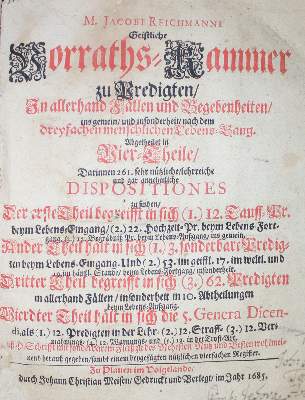 M. JACOBI REICHMANNI
Geistliche
Vorraths-Kammer
zu Predigten/
In allerhand Fällen und Begebenheiten/
ins gemein/ und insonderheit/ nach dem
dreyfachen menschlichen Lebens-Gang.
Abgetheilet in
Vier-Theile/
Darinnen 261. sehr nützliche/lehrreiche
und gar annehmliche
DISPOSITIONES
zu finden/
Der erste Theil begreifft in sich (1.) 12. Tauff-Pr.
beym Lebens-Eingang/ (2.) 22. Hochzeit-Pr. beym Lebens-Fort-
gang. (3.) 12. Begräbniß-Pr. beym Lebens-Außgang/ ins gemein.
Ander Theil hält in sich (1.) 3. sonderbare Predig-
ten beym Lebens-Eingang. Und (2.) 53. im geistl. 17. im weltl. und
19. im häusl. Stand/ beym Lebens-Fortgang/ insonderheit.
Dritter Theil begreifft in sich (3.) 62. Predigten
in allerhand Fällen/ insonderheit in 10. Abtheilungen
beym Lebens-Außgang.
Vierdter Theil hält in sich die 5. Genera Dicen-
di, als (1.) 12. Predigten in der Lehr- (2.) 12. Straff- (3.) 12. Ver-
mahnungs- (4.) 12. Warnungs- und (5.) 13. in der Trost-Art.
H. Schrifft mit sonderbarem Fleiß
Zu Plauen im Voigtlande.
durch Johann Christian Meisen/ Gedruckt und Verlegt/ im Jahr 1685.